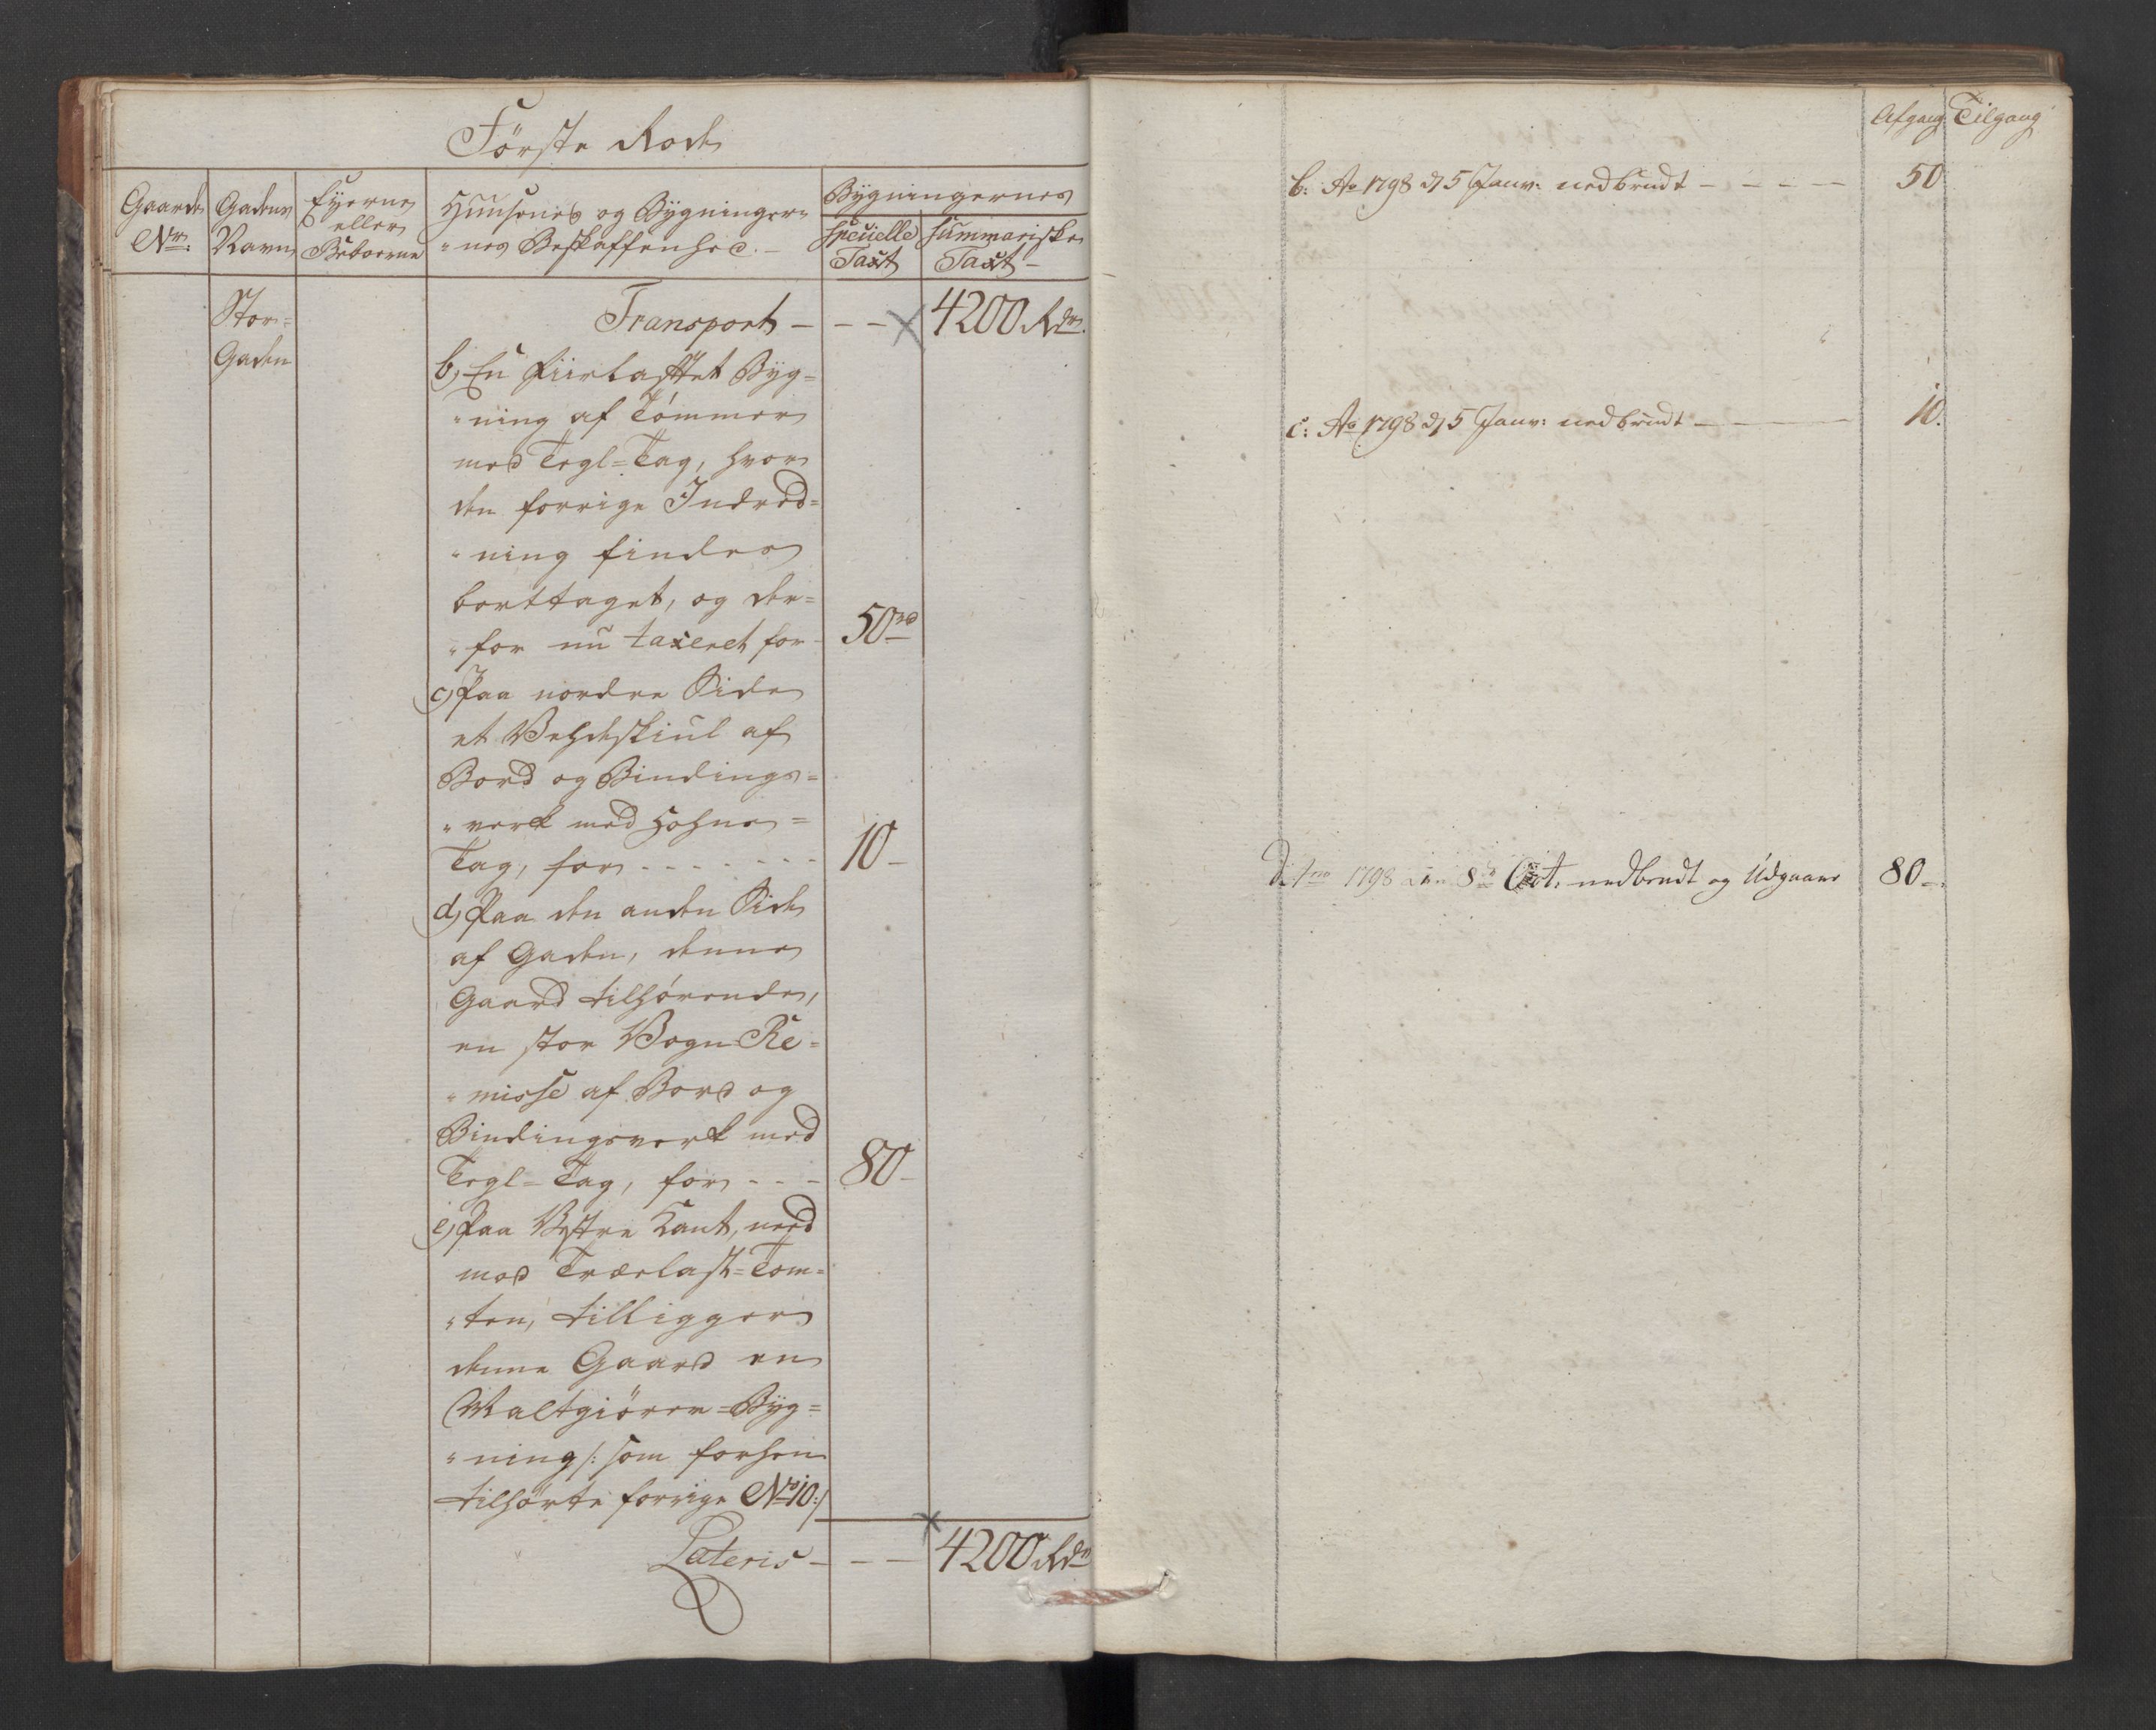 Første Rode
Gaardens Gadens Eyerne Huusenes og Bygninger¬ Bygningernes
Nr: Navn eller "nes Beskaffenhed. — Specielle Summariske
Beboerne Taxt Taxt —
Stor= Transport — — — 4200 Rdr.
Gaden
b, En Fiirlaftet Byg=
"ning af Tømmer
med Tegl=Tag, hvor
den forrige Indred=
"ning findes
borttaget, og der=
"for nu taxeret for — 50 rd
c, Paa nordre Side
et Vehdeskiul af
Bord og Bindings=
"verk med Hohne=
Tag, for - - - - - - - 10 —
d, Paa den anden Side
af Gaden, denne
Gaard tilhørende,
en stor Vogn Re=
"misse af Bord og
Bindingsverk med
Tegl=Tag, for - - - 80 —
e, Paa Vestre Kant, ned
mod Trælast=Tom=
"ten, tilligger
denne Gaard en
Maltgiører=Byg=
"ning /: som forhen
tilhørte forrige No 10 :/
Lateris — — — 4200 Rdr
Afgang Tilgang
b: Ao 1798 d 5 Janv: nedbrudt — — — — 50
c: Ao 1798 d 5 Janv: nedbrudt — — 10.
d. 1798 den 8de Oct. nedbrudt og Udgaaer 80 —